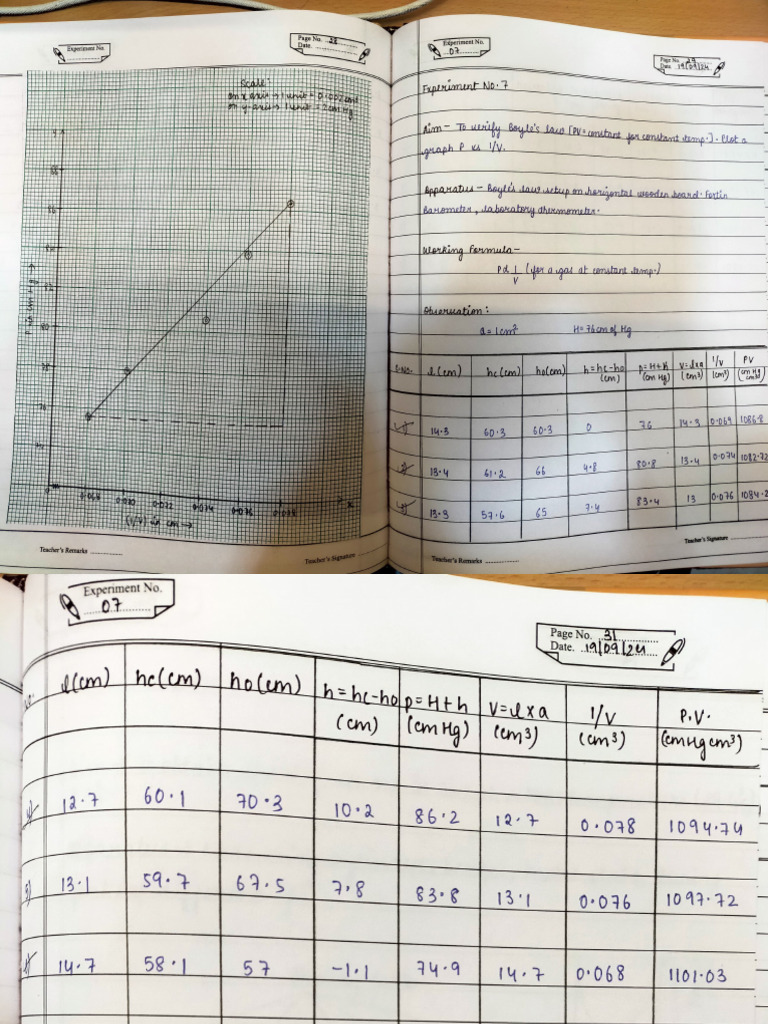 Experiment No.
Page No. 28
Date.
Scale:
on x axis → 1 unit = 0.002 cm³
on y-axis → 1 unit = 2 cm Hg
y
88
86
80
78
76
74
0
0.068
0.070
0.072
0.074
0.076
0.078
x
(1/V) in cm →
Teacher's Remarks
Teacher's Signature
Experiment No.
07
Page No. 29
Date. 19/09/24
Experiment No. 7
Aim - To verify Boyle's law [PV = constant for constant temp.]. Plot a
graph P vs 1/V.
Apparatus - Boyle's law setup on horizontal wooden board. Fortin
Barometer, laboratory thermometer.
Working Formula -
P α 1/V (for a gas at constant temp.)
Observation:
a = 1cm² H = 76cm of Hg
S.NO. l(cm) hc(cm) ho(cm) h = hc-ho (cm) p = H+h (cm Hg) V = l×a (cm³) 1/V (cm³) PV (cm Hg cm³)
1) 14.3 60.3 60.3 0 76 14.3 0.069 1086.8
2) 13.4 61.2 66 4.8 80.8 13.4 0.074 1082.72
3) 13.3 57.6 65 7.4 83.4 13 0.076 1084.2
Teacher's Remarks
Teacher's Signature
Experiment No.
07
Page No. 31
Date. 19/09/24
l(cm) hc(cm) ho(cm) h = hc-ho (cm) p = H+h (cm Hg) V = l×a (cm³) 1/V (cm³) P.V. (cmHgcm³)
4) 12.7 60.1 70.3 10.2 86.2 12.7 0.078 1094.74
5) 13.1 59.7 67.5 7.8 83.8 13.1 0.076 1097.72
14.7 58.1 57 -1.1 74.9 14.7 0.068 1101.03